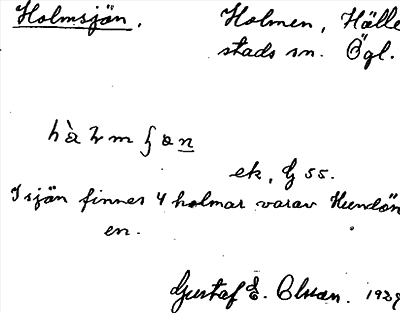 Holmsjön. Holmen, Hälle
stads sn. Ögl.
ek, G 55.
I sjön finnes 4 holmar varav Hundön
en.
Gustaf E. Olsson. 1929